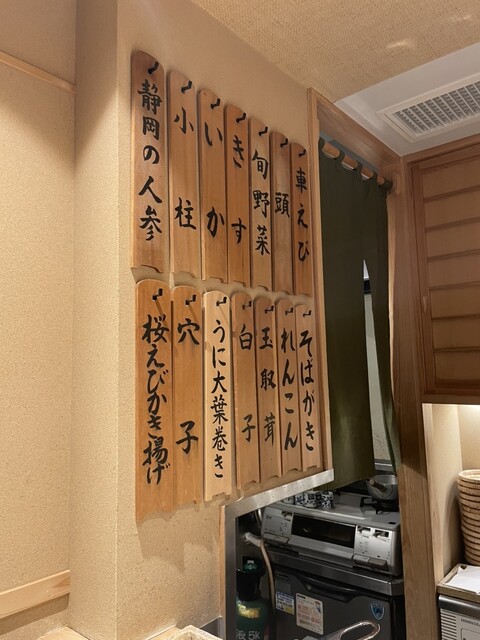 車えび
頭
旬野菜
きす
いか
小柱
静岡の人参
そばがき
れんこん
玉取茸
白子
うに大葉巻き
穴子
桜えびかき揚げ